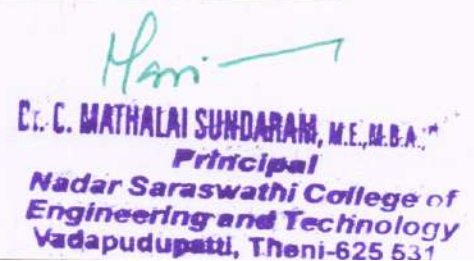 Dr. C. MATHALAI SUNDARAM, M.E.,M.B.A.,
Principal
Nadar Saraswathi College of
Engineering and Technology
Vadapudupatti, Theni-625 531